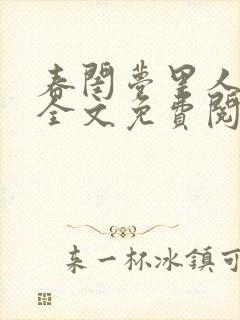 春閨夢里人
全文免費閱
来一杯冰鎮可